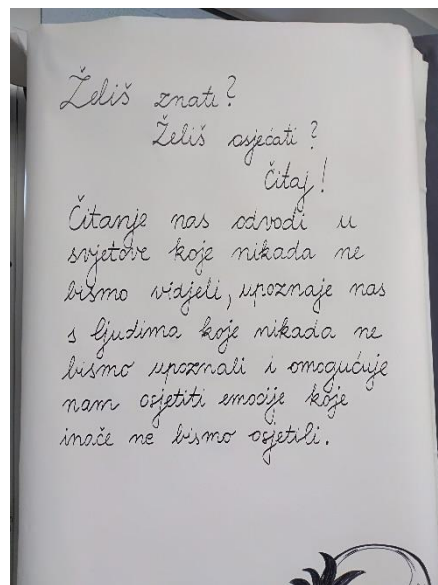 Želiš znati?
Želiš osjećati?
Čitaj!
Čitanje nas odvodi u
svjetove koje nikada ne
bismo vidjeli, upoznaje nas
s ljudima koje nikada ne
bismo upoznali i omogućuje
nam osjetiti emocije koje
inače ne bismo osjetili.